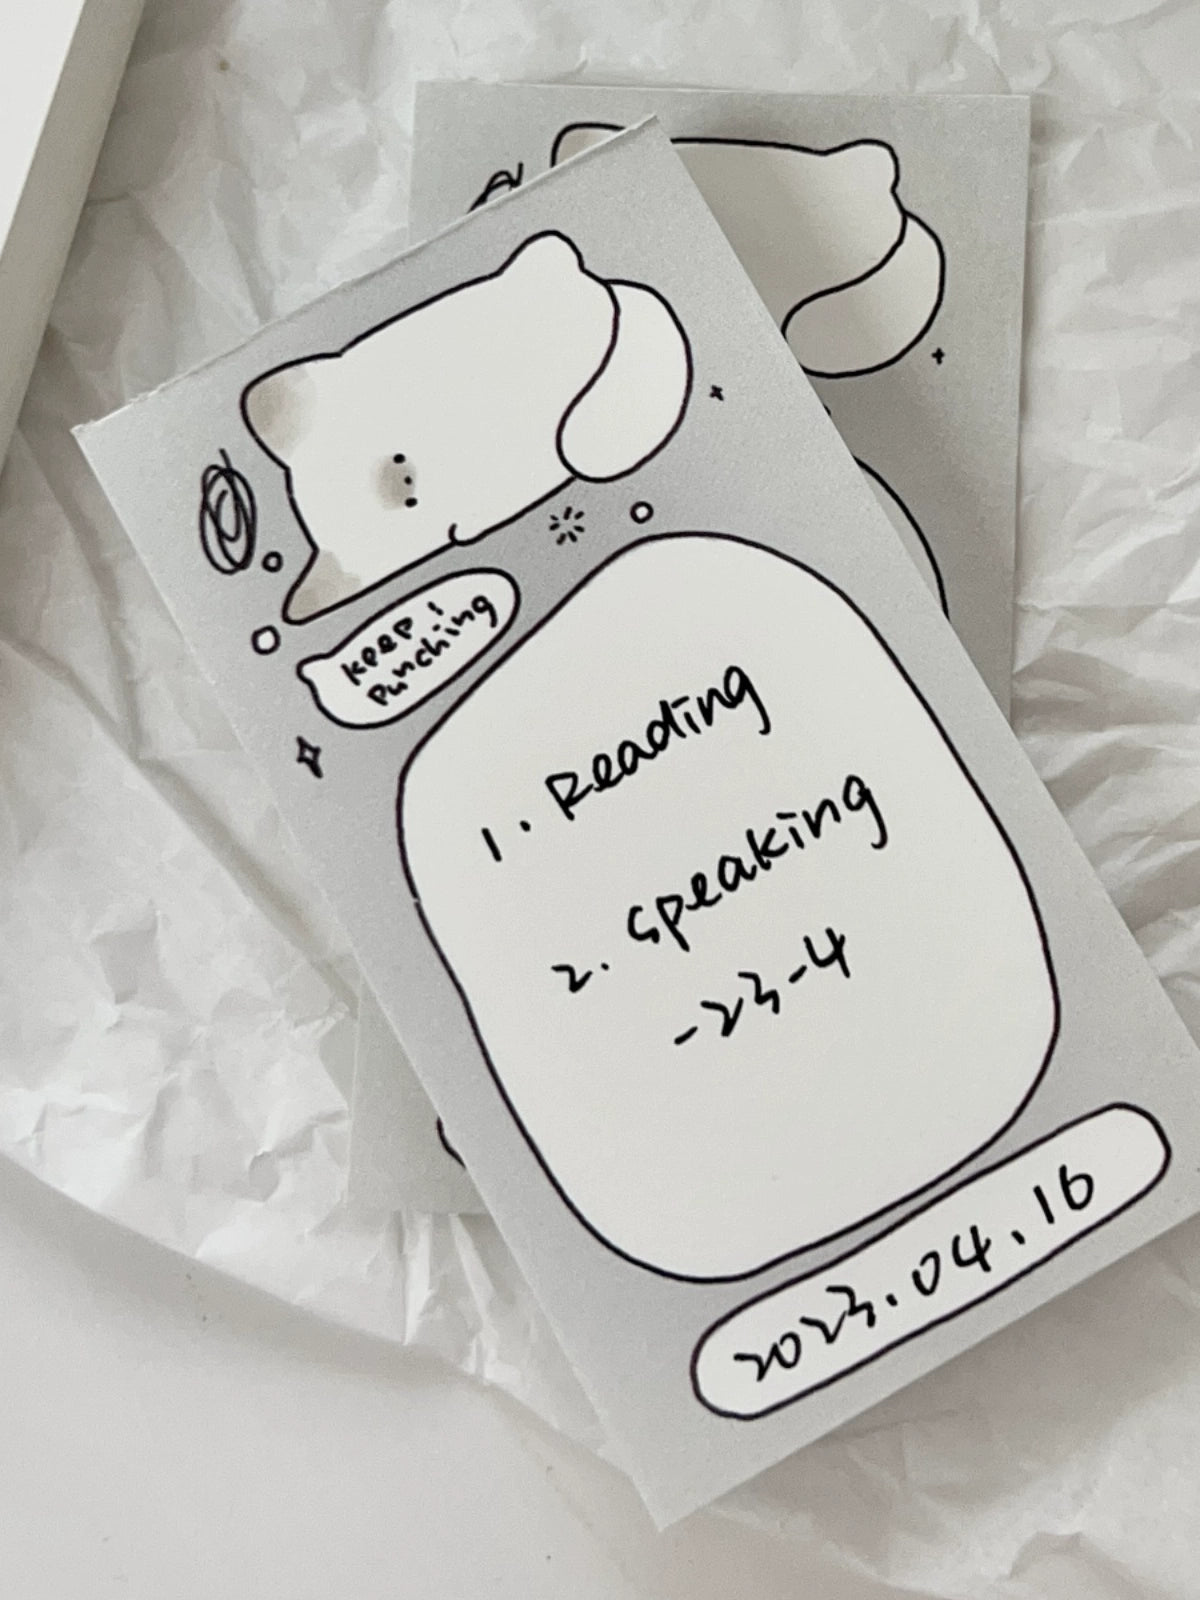 keep!
Punching
1. Reading
2. speaking
-23-4
2023.04.16